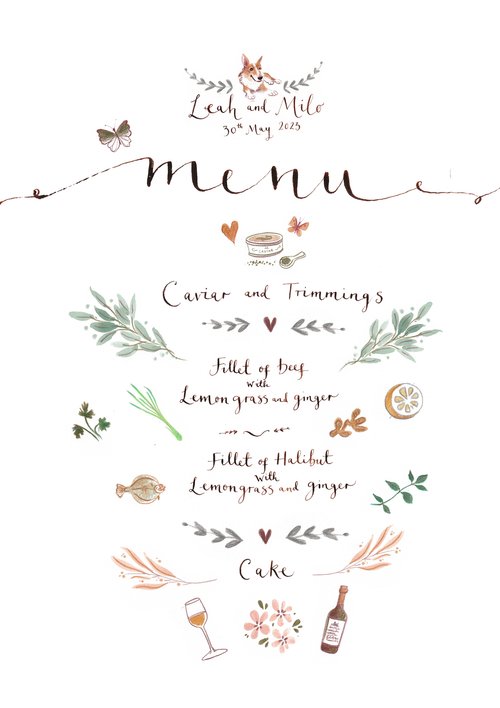 Leah and Milo
30th May 2023
menu
CAVIAR
Caviar and Trimmings
Fillet of beef
with
Lemon grass and ginger
Fillet of Halibut
with
Lemongrass and ginger
Cake